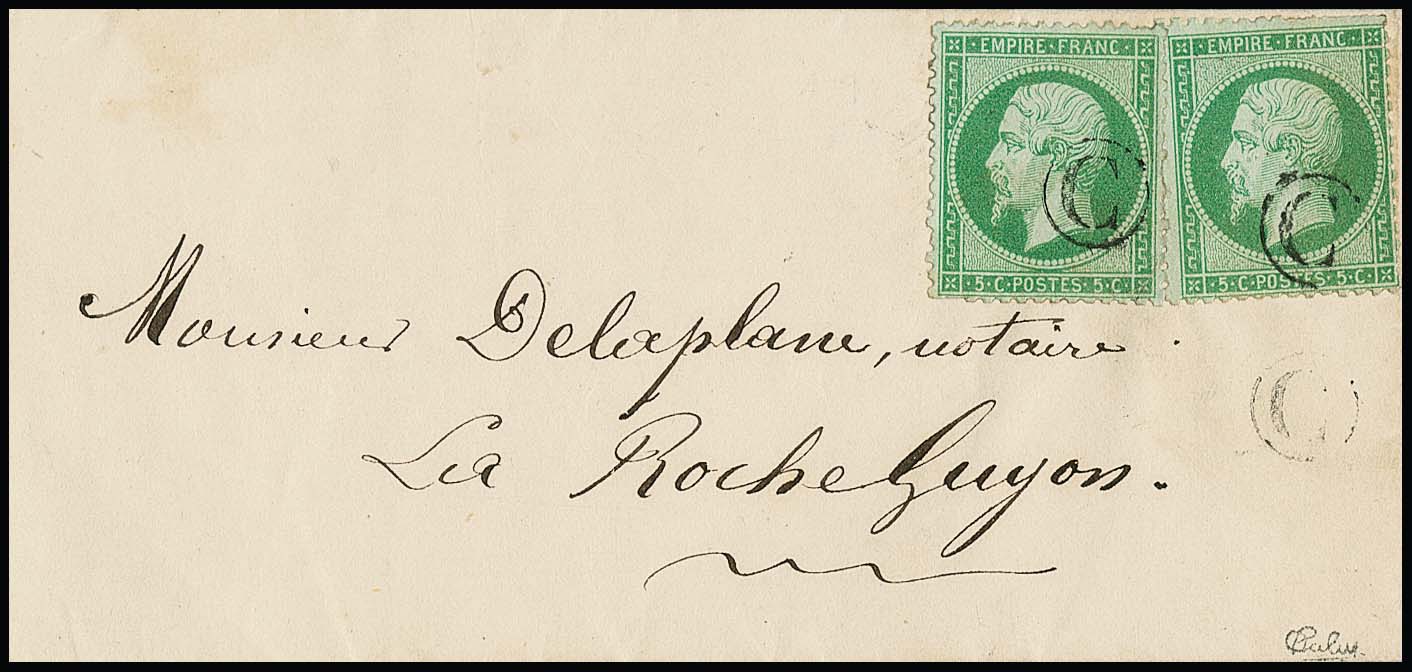 EMPIRE · FRANC · EMPIRE · FRANC ·
C C
5 · C · POSTES · 5 · C · 5 · C · POSTES · 5 · C ·
Monsieur Delaplane, notaire
C
La Roche Guyon.